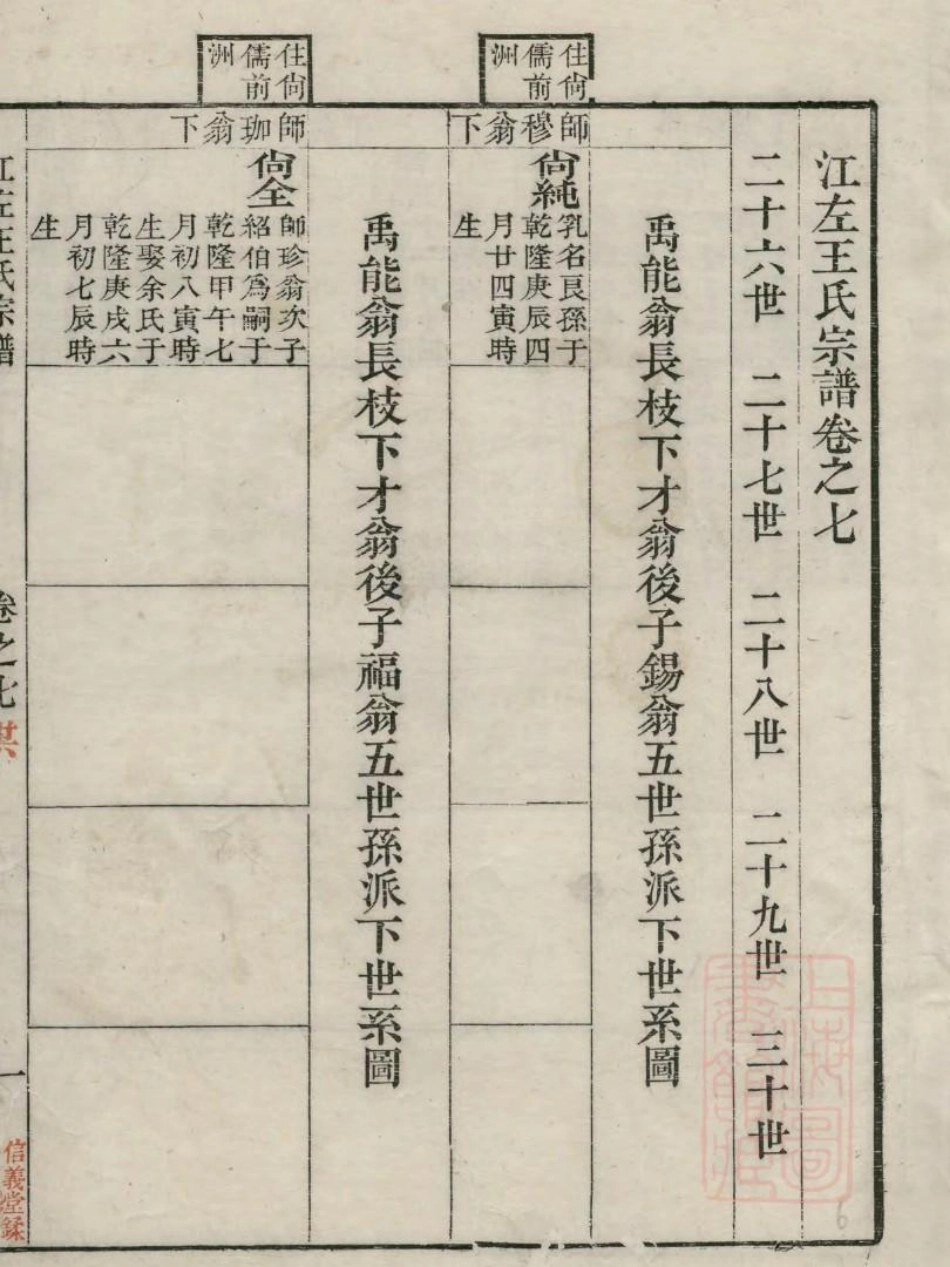 江左王氏宗譜卷之七
二十六世 二十七世 二十八世 二十九世 三十世
禹能翁長枝下才翁後子錫翁五世孫派下世系圖
住尙
儒前
洲
師穆翁下
尙純
乳名艮孫于
乾隆庚辰四
月廿四寅時
生
禹能翁長枝下才翁後子福翁五世孫派下世系圖
住尙
儒前
洲
師珈翁下
尙全
師珍翁次子
紹伯爲嗣于
乾隆甲午七
月初八寅時
生娶余氏于
乾隆庚戌六
月初七辰時
生
江左王氏宗譜
卷之七
一
信義堂
6